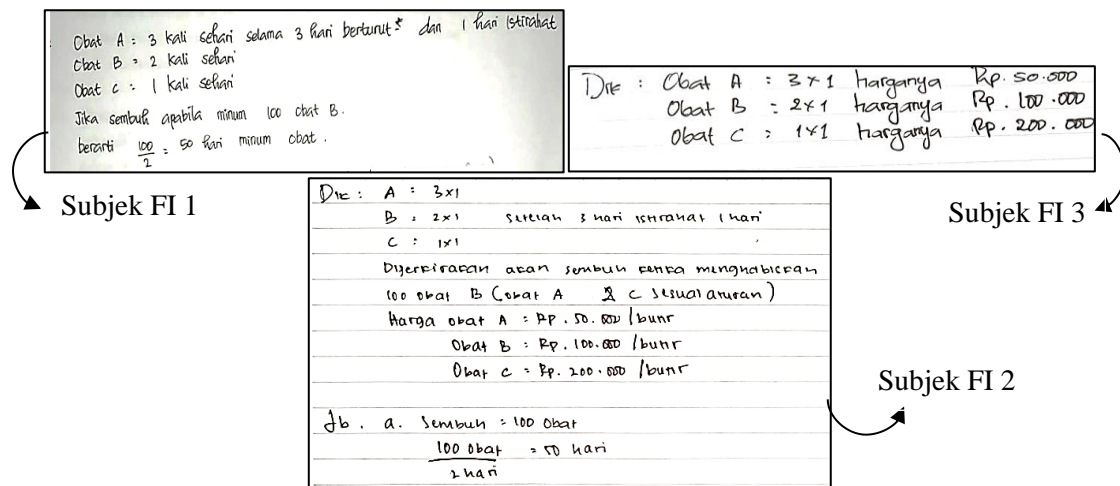 Obat A = 3 kali sehari selama 3 hari berturut² dan 1 hari istirahat
Obat B = 2 kali sehari
Obat C = 1 kali sehari
Jika sembuh apabila minum 100 obat B.
berarti 100/2 = 50 hari minum obat.
Subjek FI 1
Dik : Obat A : 3x1 harganya Rp. 50.000
Obat B : 2x1 harganya Rp. 100.000
Obat C : 1x1 harganya Rp. 200.000
Subjek FI 3
Dik : A : 3x1
B : 2x1 setelah 3 hari istirahat 1 hari
C : 1x1
Diperkirakan akan sembuh ketika menghabiskan
100 obat B (obat A & C sesuai aturan)
Harga obat A = Rp. 50.000 /butir
Obat B = Rp. 100.000 /butir
Obat C = Rp. 200.000 /butir
Jb. a. Sembuh = 100 obat
100 obat / 2 hari = 50 hari
Subjek FI 2